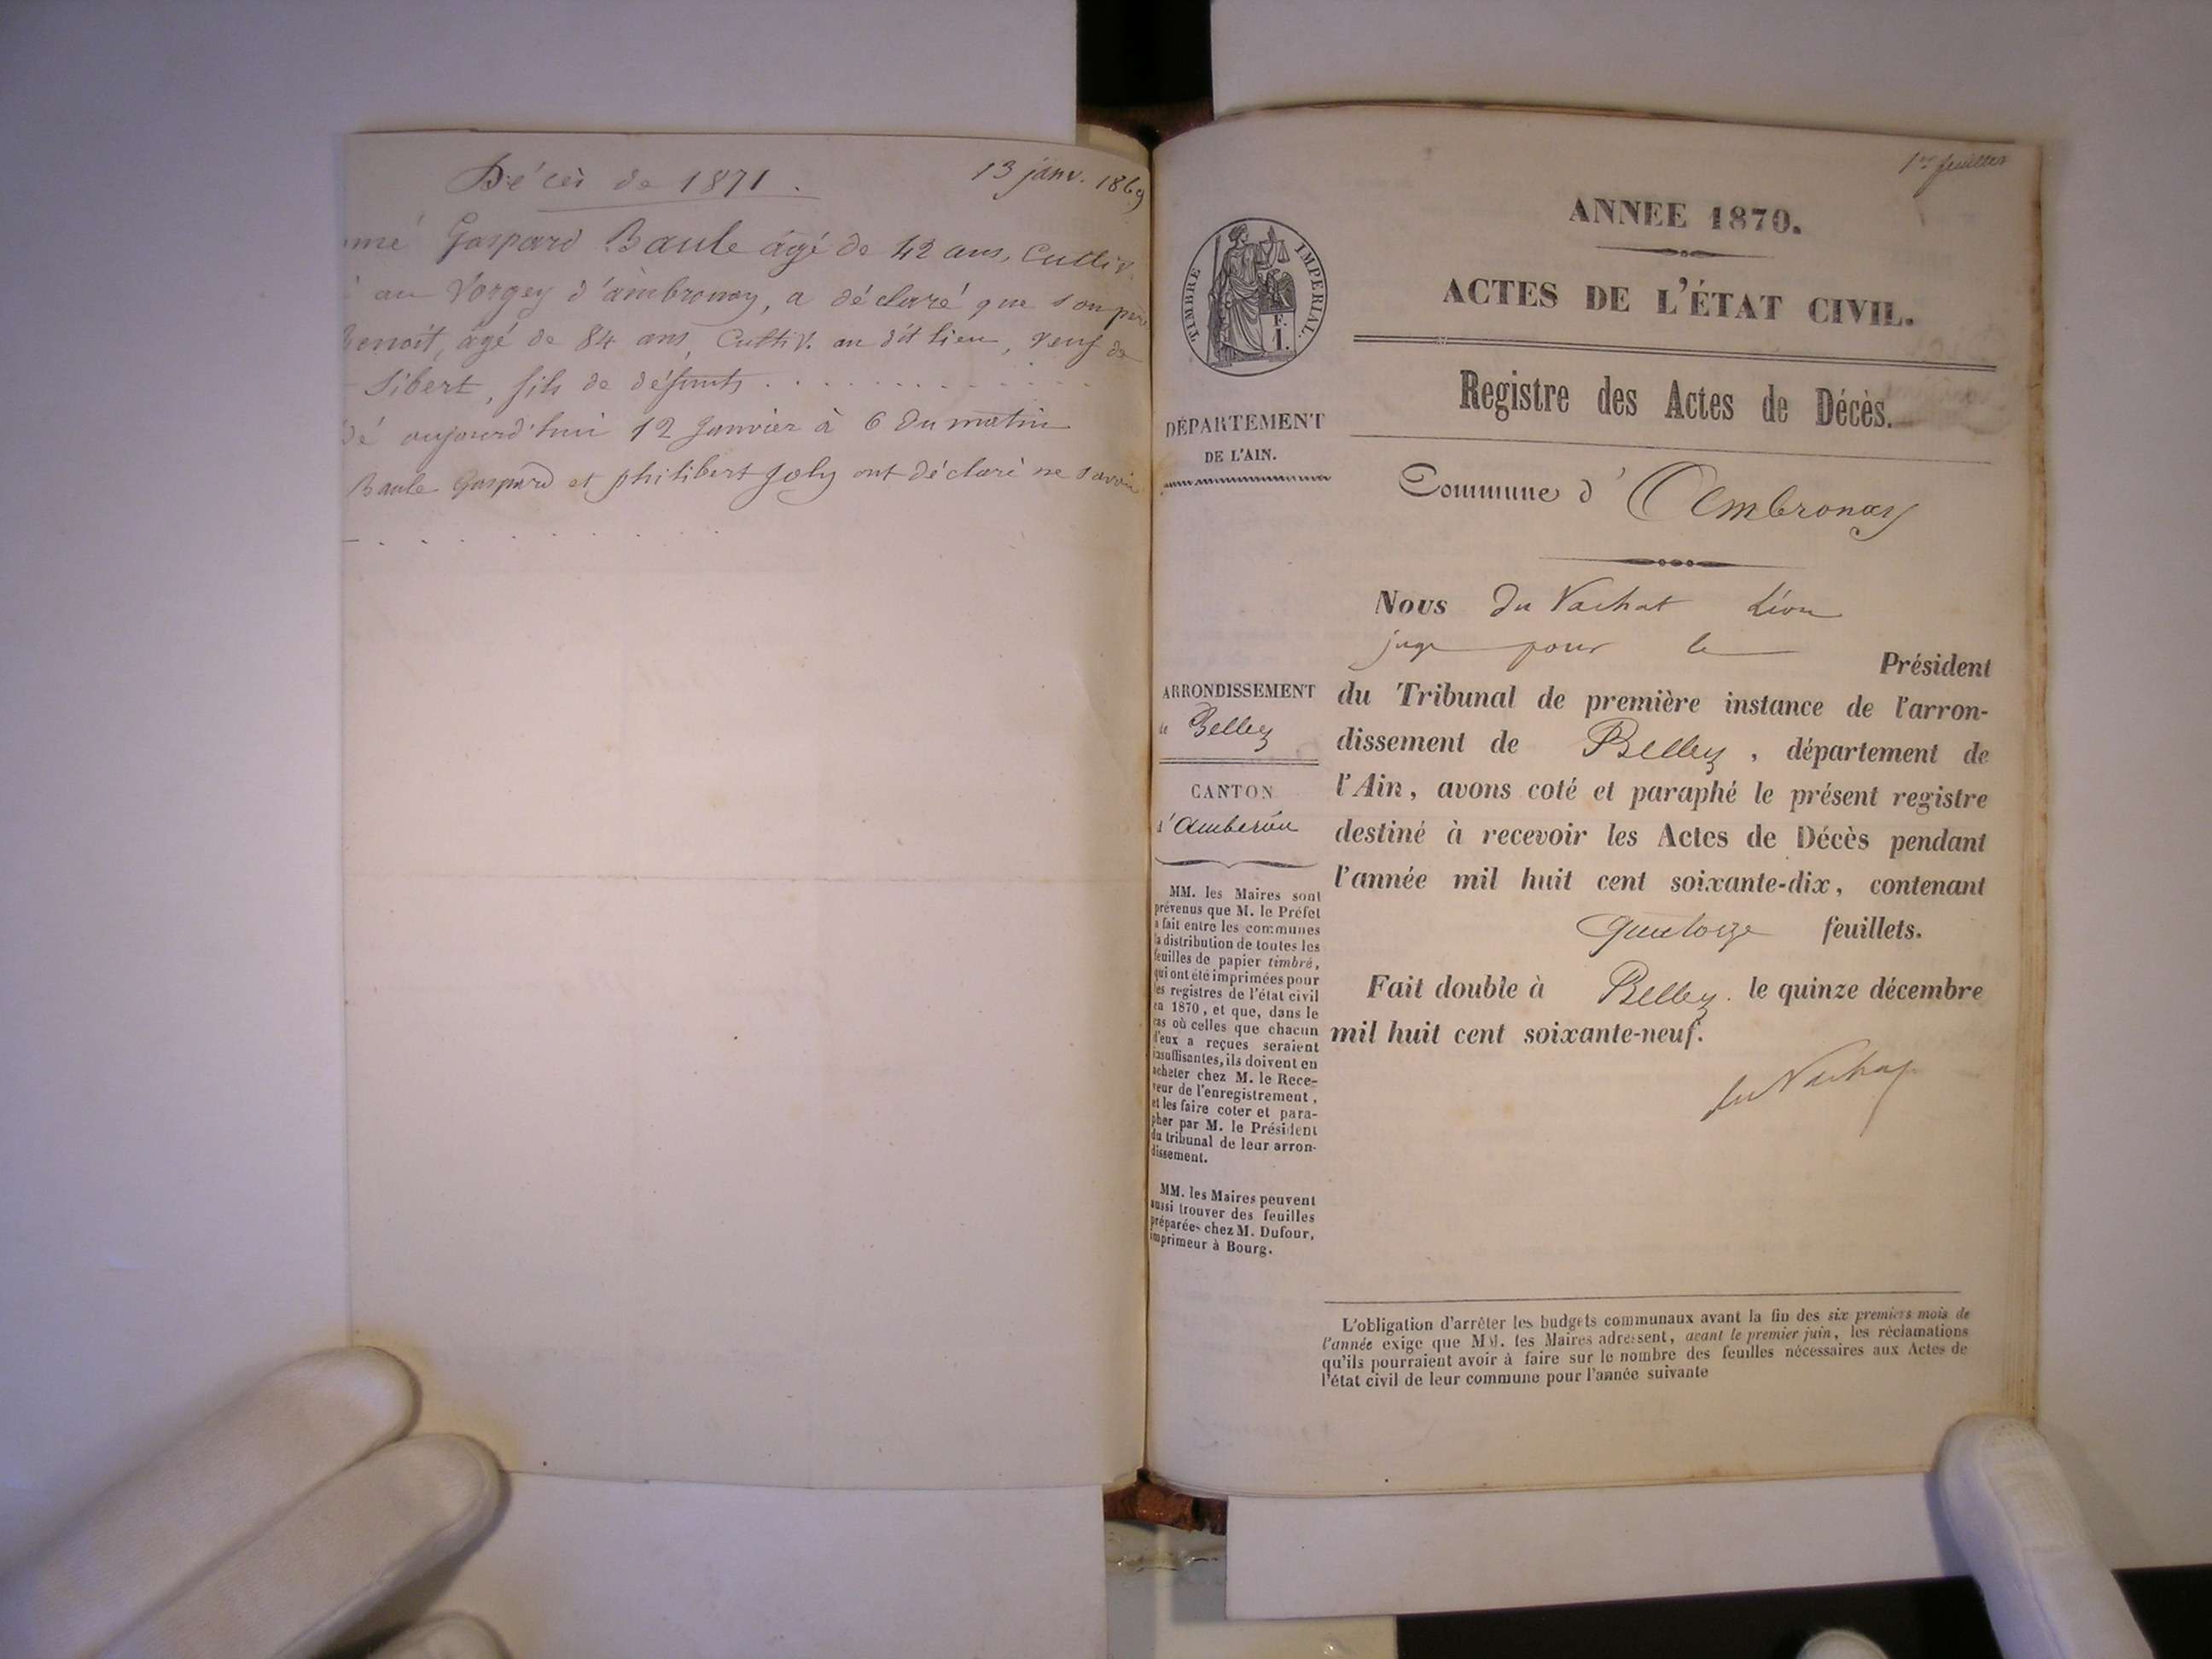 Décès de 1871.
13 janv. 1869
mé Gaspard Baule âgé de 42 ans, Cultiv.
au Vorgey d'ambronay, a déclaré que son père
Benoit, âgé de 84 ans, Cultiv. au dit lieu, veuf de
Sibert, fils de défunts . . . . . . . . . . . . .
dé aujourd'hui 12 Janvier à 6 du matin
Baule Gaspard et philibert Joly ont déclaré ne savoir
1er feuillet
ANNEE 1870.
ACTES DE L'ÉTAT CIVIL.
TIMBRE IMPERIAL.
F.
1.
Registre des Actes de Décès.
DÉPARTEMENT
DE L'AIN.
Commune d'Ambronay
Nous du Vachat Léon
juge pour le
Président
du Tribunal de première instance de l'arron-
dissement de Belley, département de
l'Ain, avons coté et paraphé le présent registre
destiné à recevoir les Actes de Décès pendant
l'année mil huit cent soixante-dix, contenant
quatorze feuillets.
Fait double à Belley. le quinze décembre
mil huit cent soixante-neuf.
du Vachat
ARRONDISSEMENT
de Belley
CANTON
d'Ambérieu
MM. les Maires sont
prévenus que M. le Préfet
a fait entre les communes
la distribution de toutes les
feuilles de papier timbré,
qui ont été imprimées pour
les registres de l'état civil
en 1870, et que, dans le
cas où celles que chacun
d'eux a reçues seraient
insuffisantes, ils doivent en
acheter chez M. le Rece-
veur de l'enregistrement,
et les faire coter et para-
pher par M. le Président
du tribunal de leur arron-
dissement.
MM. les Maires peuvent
aussi trouver des feuilles
préparées chez M. Dufour,
imprimeur à Bourg.
L'obligation d'arrêter les budgets communaux avant la fin des six premiers mois de
l'année exige que MM. les Maires adressent, avant le premier juin, les réclamations
qu'ils pourraient avoir à faire sur le nombre des feuilles nécessaires aux Actes de
l'état civil de leur commune pour l'année suivante